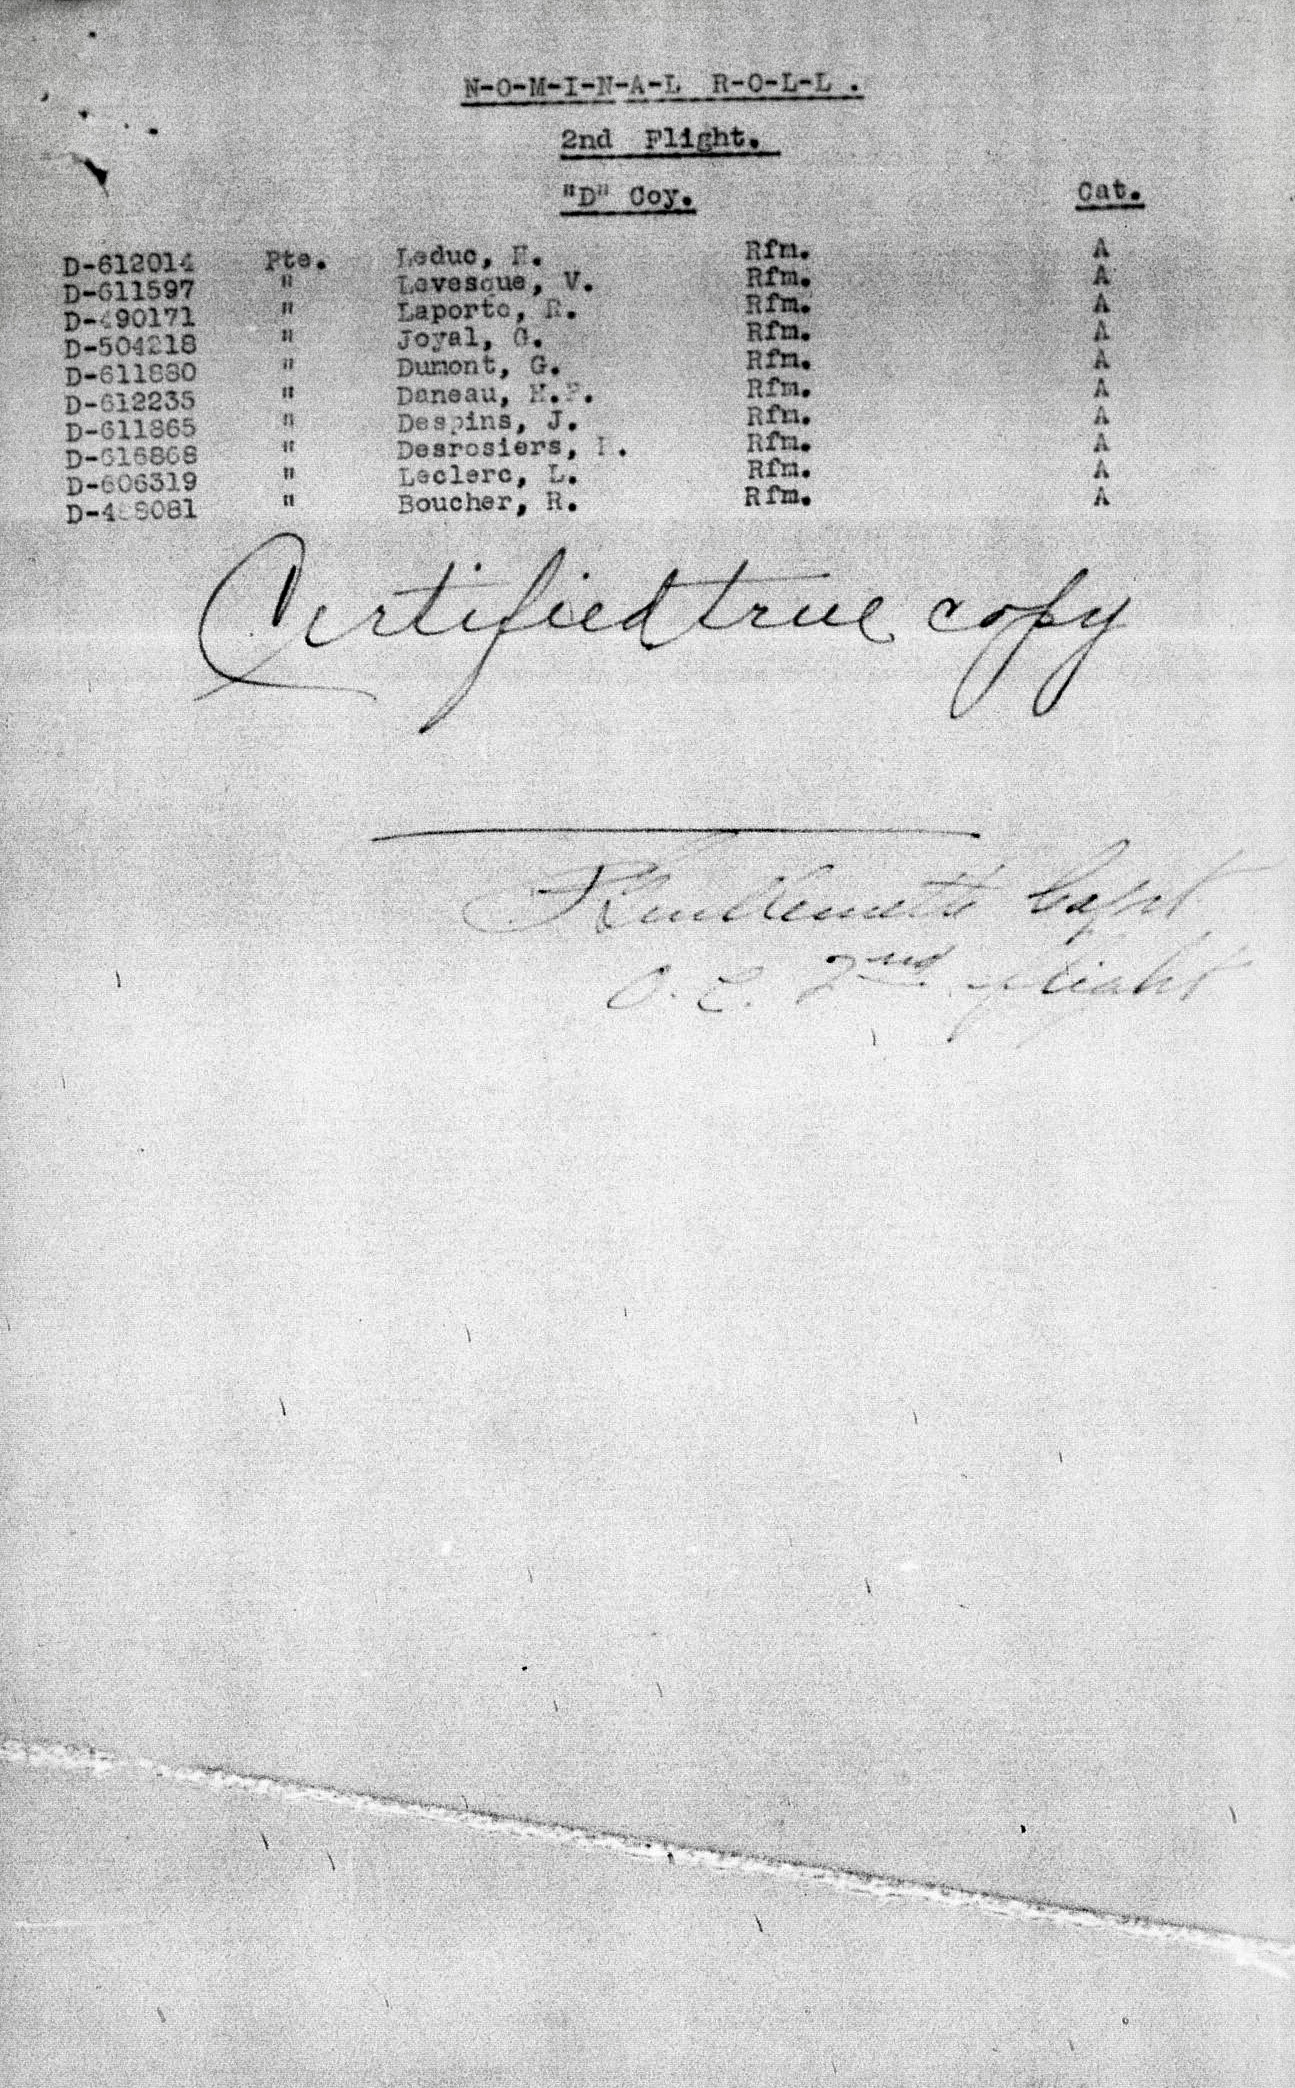 N-O-M-I-N-A-L R-O-L-L .
2nd Flight.
"D" Coy. Cat.
D-612014 Pte. Leduc, Rfm. A
D-611597 " Levesque, V. Rfm. A
D-490171 " Laporte, R. Rfm. A
D-504218 " Joyal, G. Rfm. A
D-611880 " Dumont, G. Rfm. A
D-612235 " Daneau, Rfm. A
D-611865 " Despins, J. Rfm. A
D-616868 " Desrosiers, Rfm. A
D-606319 " Leclerc, L. Rfm. A
" Boucher, R. Rfm. A
Certified true copy
Capt
O. C. 2nd flight